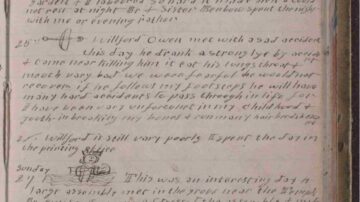 not rest at night Br & Sister Benbow spent the night
with me or evening father
25 Willford Owen met with a sad accident
this day he drank a strong lye by accid
& come near killing him it eat his lungs throat &
mouth vary bad we were fearful he would not
recover if he follows my footsteps he will have
many hard accidents to pass through in life for
I have been vary unfortunate in my Childhood &
youth in breaking my bones & run many hair breadth
26 Willford is still vary poorly I spent the day in
the printing office
Sunday
27 This was an interesting day A
large assembly met in the grove near the Temple